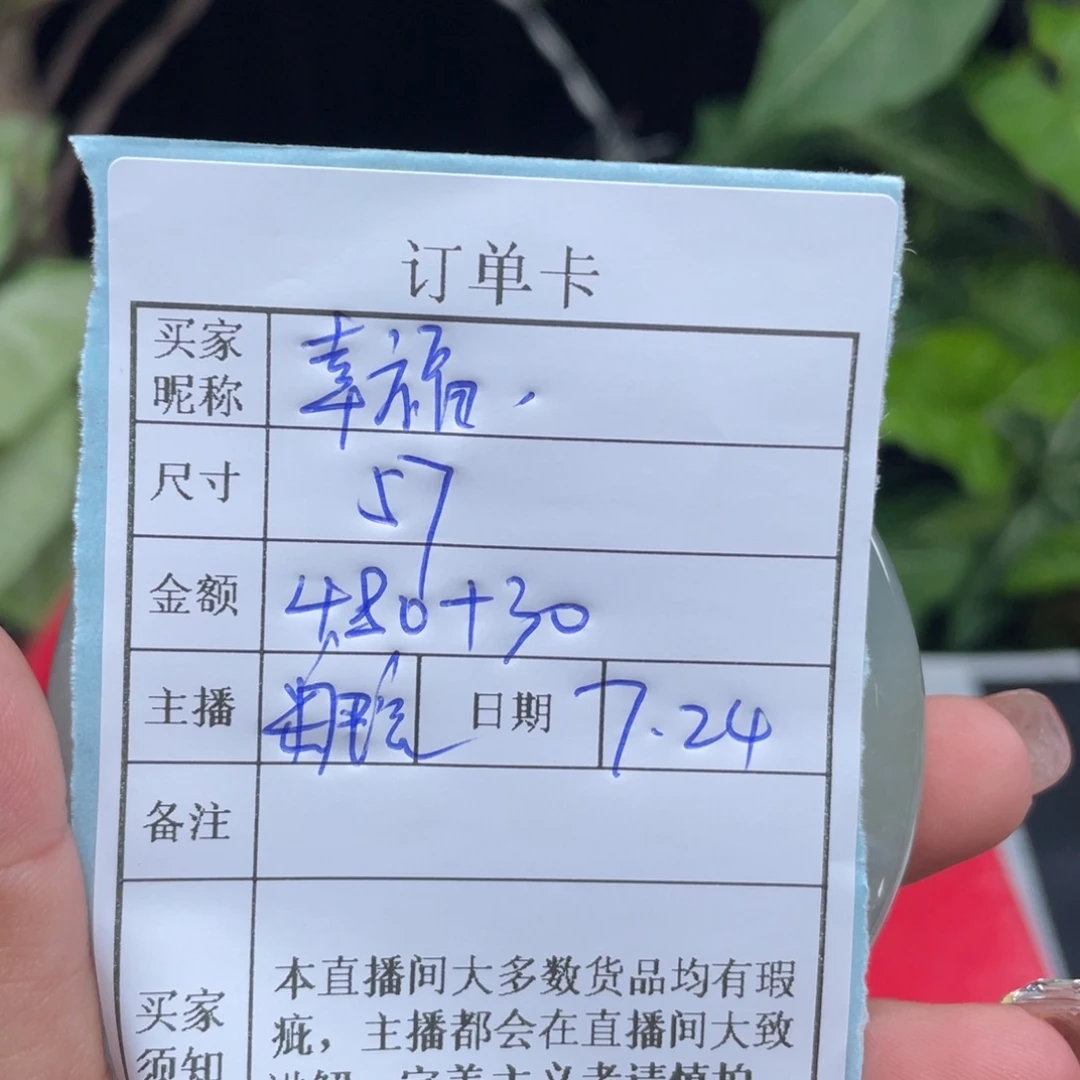 订单卡
买家昵称 幸福.
尺寸 57
金额 480+30
主播 日期 7.24
备注
买家须知
本直播间大多数货品均有瑕
疵，主播都会在直播间大致